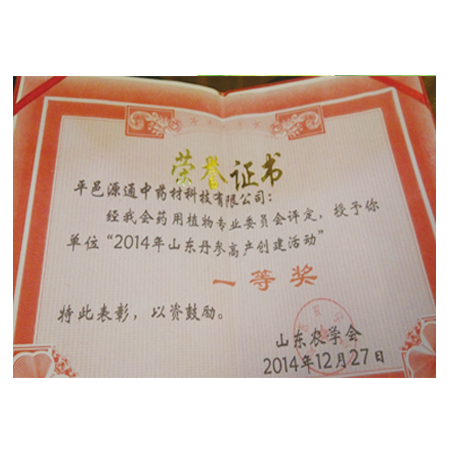 荣誉证书
平邑源通中药材科技有限公司：
经我会药用植物专业委员会评定，授予你
单位“2014年山东丹参高产创建活动”
一等奖
特此表彰，以资鼓励。
山东农学会
2014年12月27日